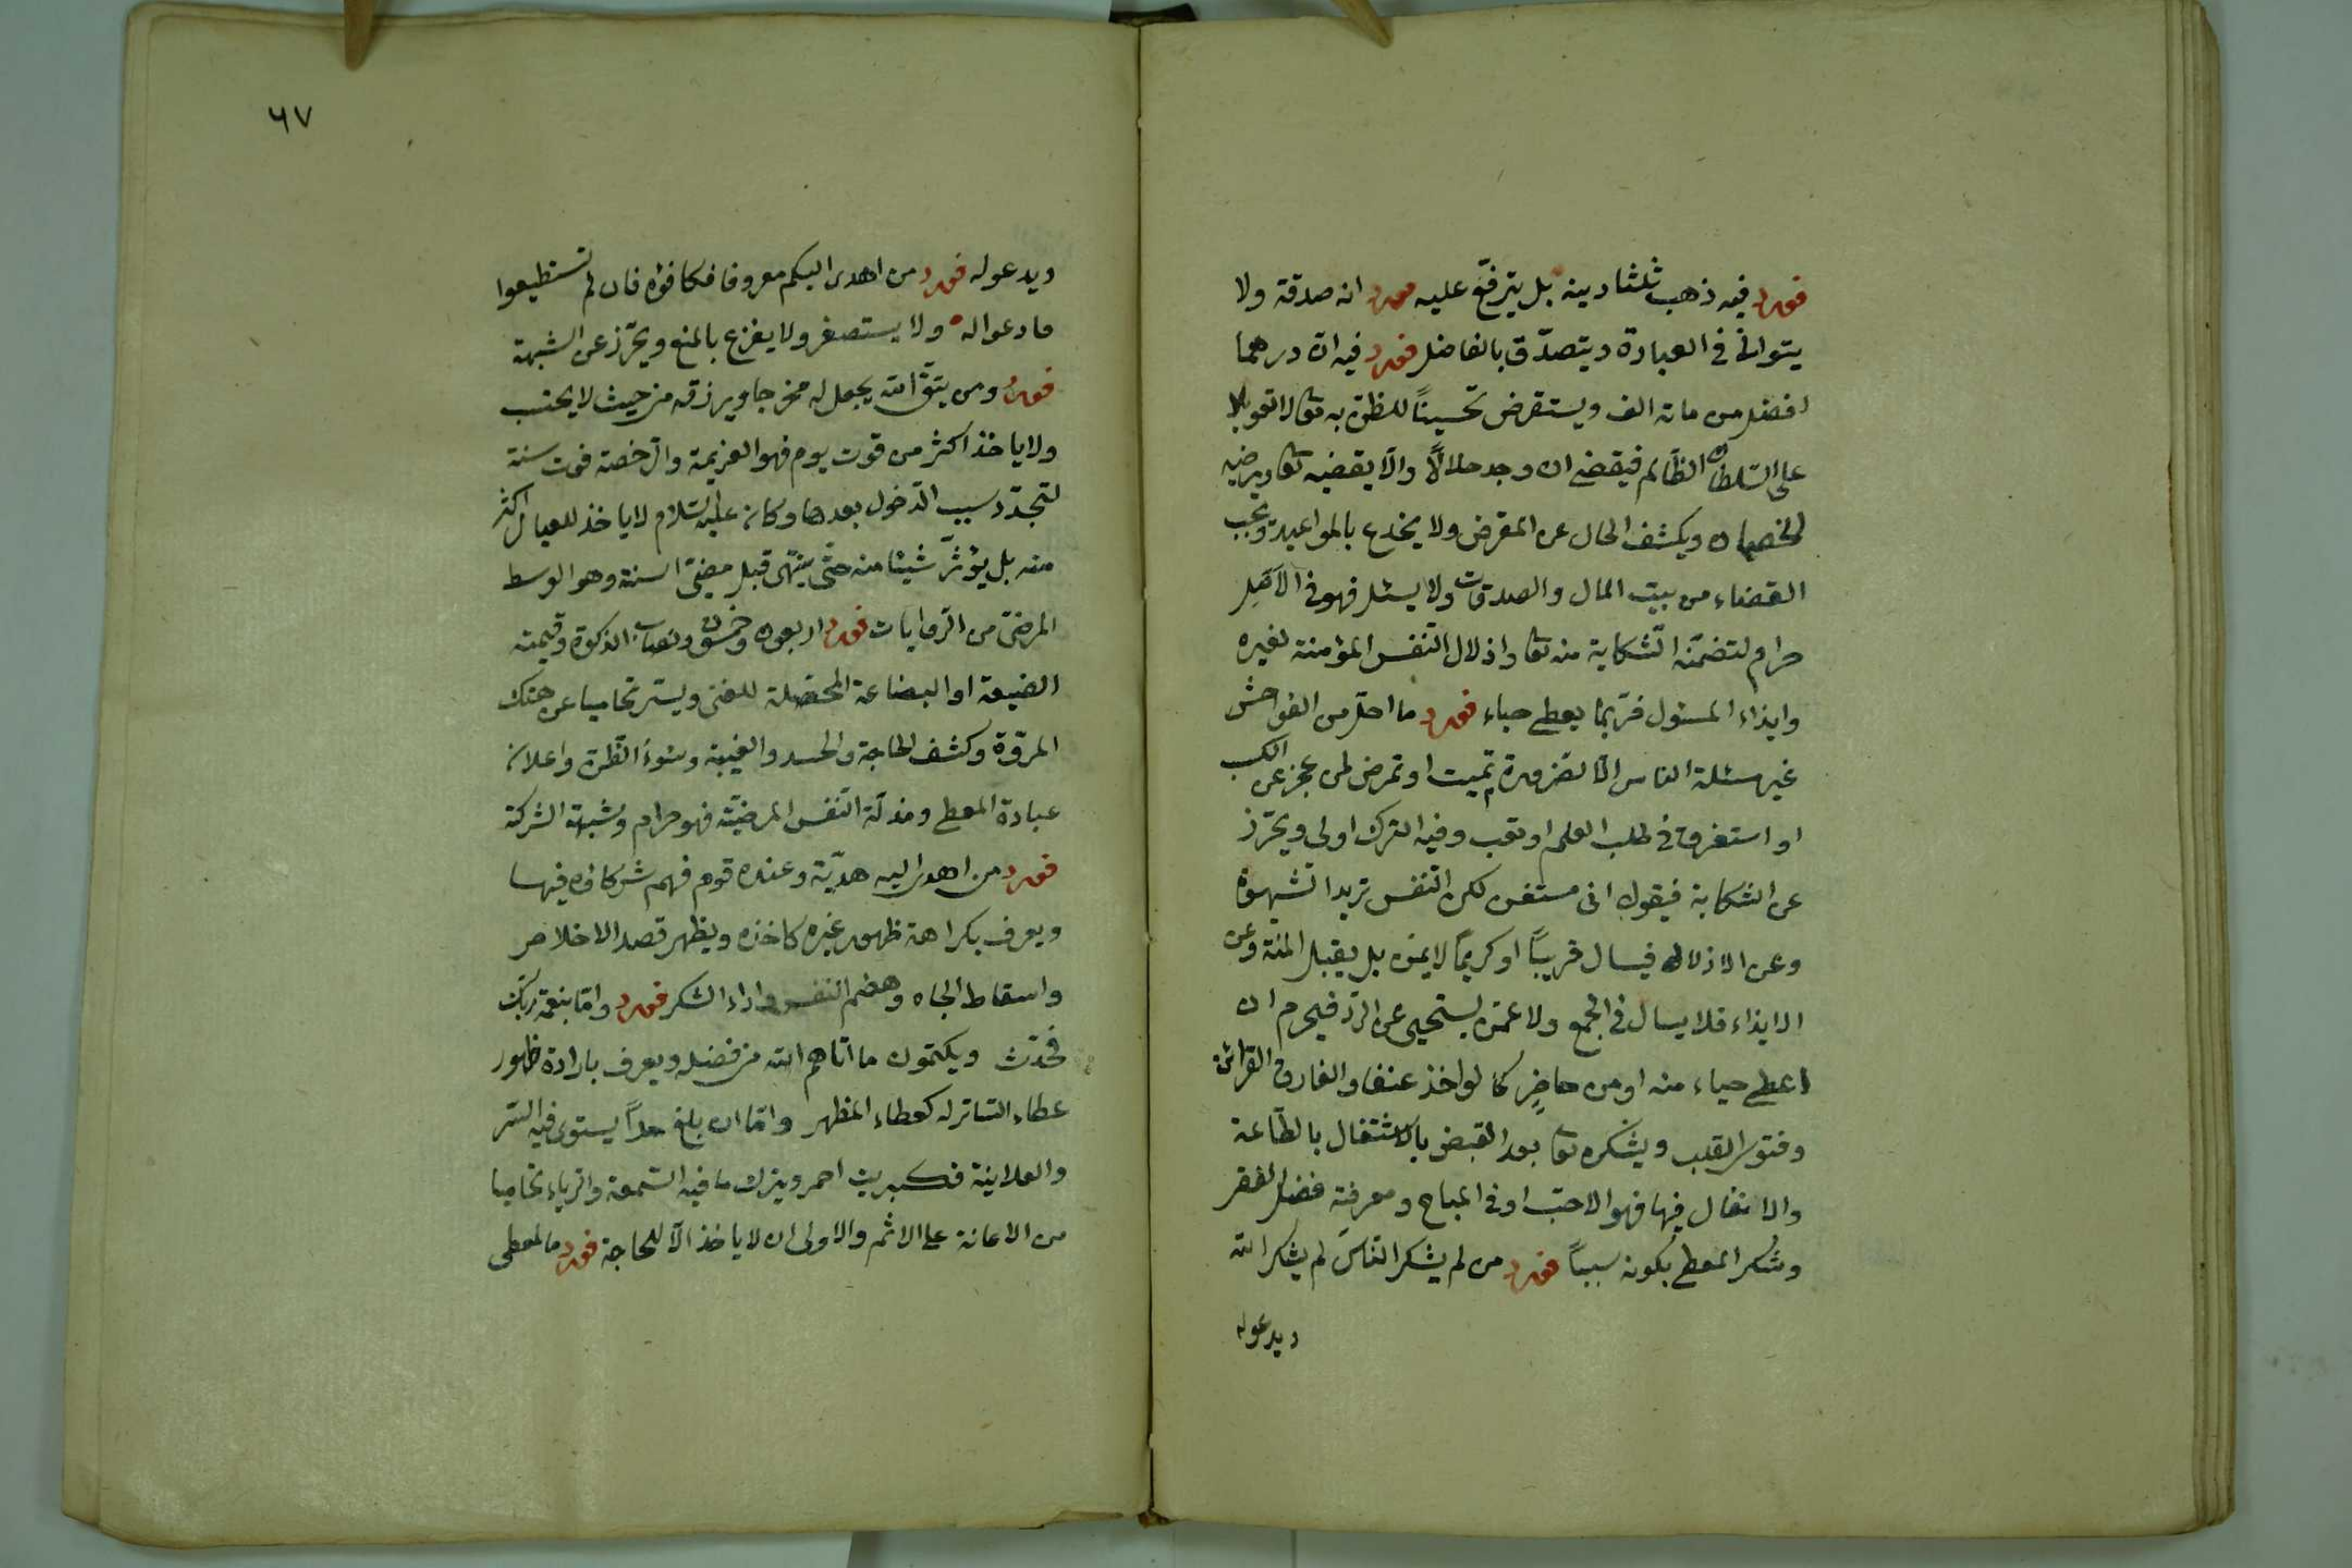 فورد فيه ذهب ثلثا دينه بل يترفّع عليه فورد انه صدقة ولا
يتوانى في العبادة ويتصدّق بالفاضل فورد فيه ان درهما
افضل من مائة الف ويستقرض تحسينًا للظن به تعا لا تعويلا
على السّلطان الظالم فيقضى ان وجد حلالًا والّا يقضيه تعا ويرضيه
الخصمان ويكشف الحال عن المقرض ولا يخدع بالمواعيد ويجب
القضاء من بيت المال والصدقات ولا يسئل فهو في الاصل
حرام لتضمّنه الشكاية منه تعا واذلال النّفس المؤمنة لغيره
وايذاء المسئول فربّما يعطى حياء فورد ما احل من الفواحش
غير مسئلة الناس الّا لضرورة تميت او تمرض لمن عجز عن الكسب
او استغرق في طلب العلم او تعب وفيه الترك اولى ويحترز
عن الشكاية فيقول انى مستغن لكن النّفس تريد الشهوة
وعن الاذلال فيسال قريبًا او كريمًا لايمنّ بل يقبل المنّة وعن
الايذاء فلا يسال في الجمع ولا عمّن يستحيى عن الردّ فيحرم ان
اعطى حياء منه او من حاضرٍ كما لو اخذ عنفا والفارق القرائن
وفتوى القلب ويشكره تعا بعد القبض بالاشتغال بالطّاعة
والانفال فيها فهو الاحبّ او في المباح ومعرفة فضل الفقر
وشكر المعطى بكونه سببًا فورد من لم يشكر الناس لم يشكر الله
ويدعوله
٦٧
ويدعوله فورد من اهدى اليكم معروفا فكافؤه فان لم تستطيعوا
فادعوا له ولا يستصغر ولا يفزع بالمنع ويحترز عن الشبهة
فورد ومن يتّق الله يجعل له مخرجا ويرزقه من حيث لا يحتسب
ولا ياخذ اكثر من قوت يوم فهو العزيمة والرّخصة قوت سنة
لتجدّد سبب الدّخول بعدها وكان عليه السّلام لا ياخذ للعيال اكثر
منه بل يؤثر شيئا منه حتّى ينتهى قبل مضىّ السنة وهو الوسط
المرضىّ من الرّوايات فورد اربعون وخمسون ونصاب الزكوة وقيمته
الضيعة او البضاعة المحصلة للغنى ويستر تحاميا عن هتك
المروّة وكشف الحاجة والحسد والغيبة وسوء الظّن واعلان
عبادة المعطى ومذلّة النّفس المرضيّة فهو حرام وشبهة الشركة
فورد من اهدى اليه هديّة وعنده قوم فهم شركاؤه فيها
ويعرف بكراهة ظهور غيره كاخذه ويظهر قصد الاخلاص
واسقاط الجاه وهضم النفس واداء الشكر فورد وامّا بنعمة ربّك
فحدّث ويكتمون ما اتاهم الله من فضله ويعرف بارادة ظهور
عطاء الساتر له كعطاء المظهر وامّا ان بلغ حدًّا يستوى فيه السّر
والعلانية فكبريت احمر ويترك ما فيه السّمعة والرّياء تحاميا
من الاعانة على الاثم والاولى ان لا ياخذ الّا للحاجة فورد ما المعطى